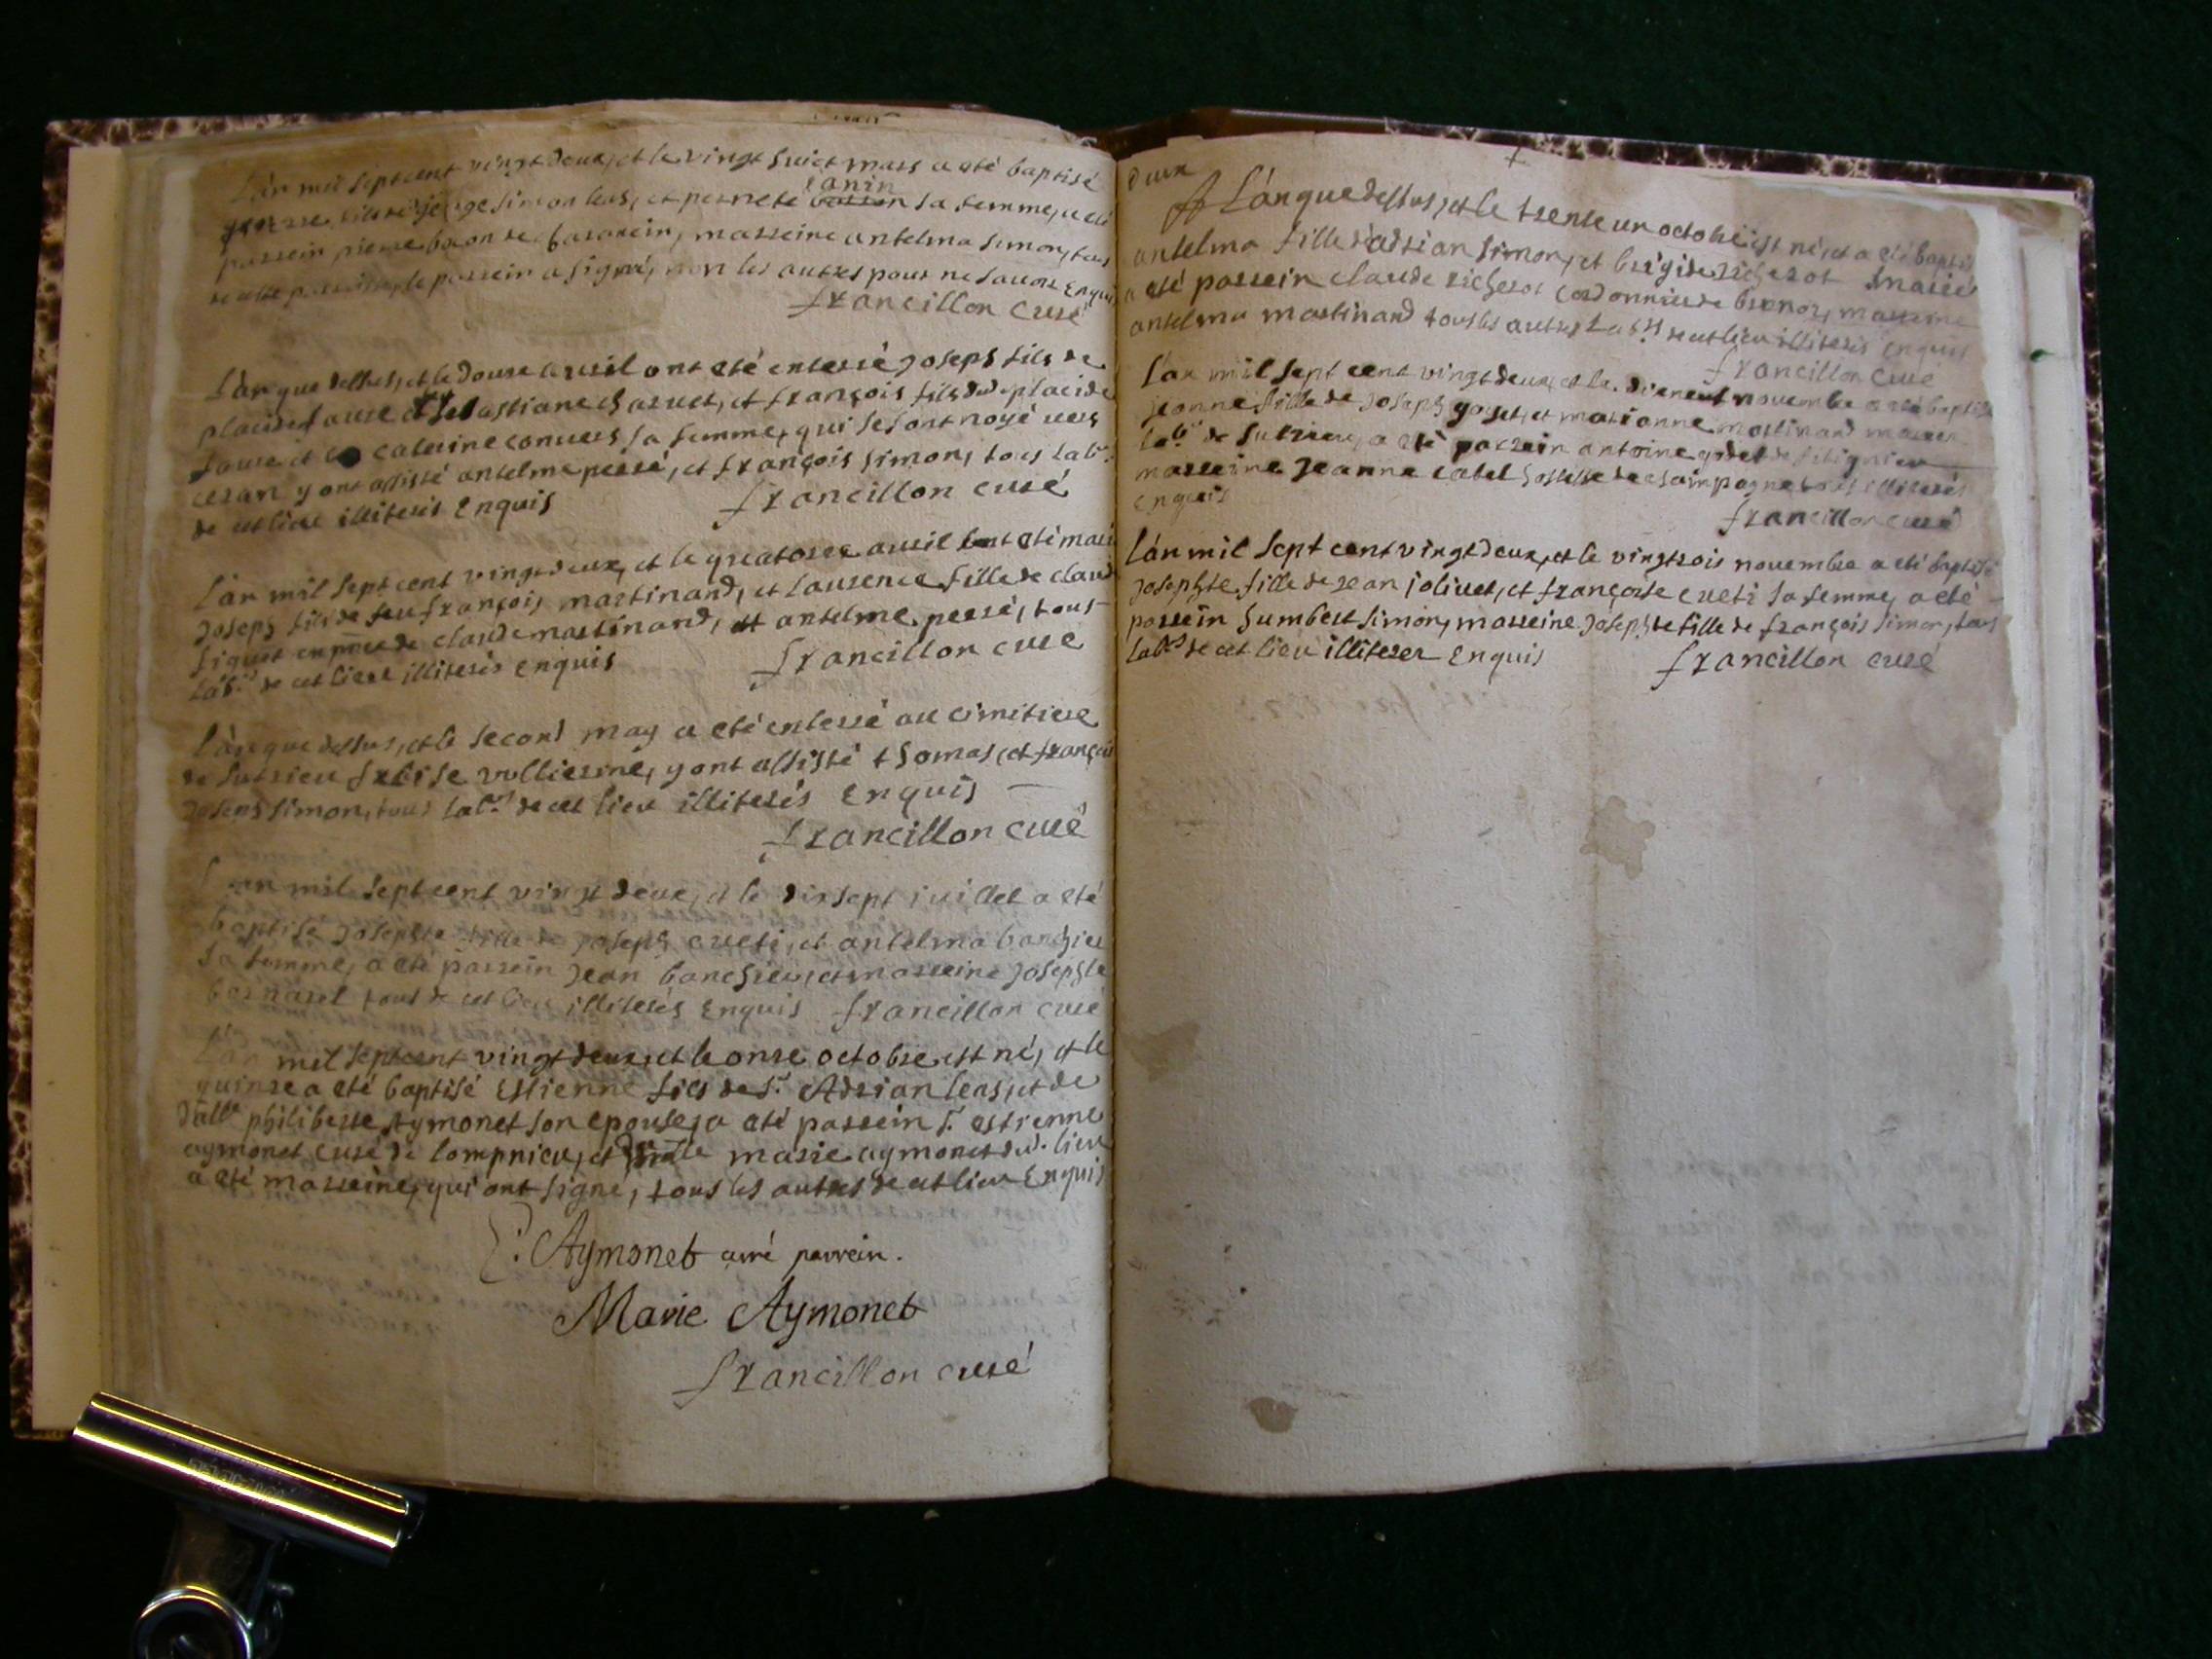 L'an mil sept cent vingt deux, et le vingt huict mars a eté baptisé
fils de george simon leus, et pernete sa femme, a eté
canin
parrein pierre de marreine antelma simon, tous
de cette le parrein a signé, non les autres pour ne savoir Enquis
francillon curé
L'an que dessus, et le douse auril ont eté enterré joseph fils de
placide et sebastiane et françois fils dud. placide
et caterine sa femme, qui se sont noyé vers
y ont assisté antelme persé, et françois simon, tous labrs
de cet lieu illiterés Enquis
francillon curé
L'an mil sept cent vingt deux, et le quatorze auril ont eté marié
joseph fils de feu françois martinand, et laurence fille de claude
en pnce de claude martinand, et antelme persé, tous
labrs de cet lieu illiterés enquis
francillon curé
L'an que dessus, et le second may a eté enterré au cimitiere
de sutrieu y ont assisté thomas, et françois
joseph simon, tous labrs de cet lieu illiterés Enquis
francillon curé
L'an mil sept cent vingt deux, et le dixsept juillet a eté
baptisé josephte fille de joseph cueti, et antelma banchieu
sa femme, a eté parrein jean banchieu, et marreine josephte
tous de cet lieu illiterés Enquis francillon curé
L'an mil sept cent vingt deux, et le onse octobre est né, et le
quinse a eté baptisé Estienne fils de sr. Adrian leus, et de
dalle philiberte Aymonet son epouse, a eté parrein sr. estienne
aymonet curé de lompnieu, et dalle marie aymonet dud. lieu
a eté marreine, qui ont signé, tous les autres de cet lieu Enquis
E. Aymonet curé parrein.
Marie Aymonet
francillon curé
deux
L'an que dessus, et le trente un octobre est né, et a eté baptisé
antelma fille d'adrian simon, et brigide richerot
a eté parrein claude richerot cordonnier de marreine
antelma martinand tous les autres labrs de cet lieu illiterés Enquis
francillon curé
L'an mil sept cent vingt deux, et le dixneuf novembre a eté baptisé
jeanne fille de joseph et marianne martinand
labr de sutrieu, a eté parrein antoine
marreine Jeanne de champagne tous illiterés
Enquis
francillon curé
L'an mil sept cent vingt deux, et le vingtrois novembre a eté baptisé
josephte fille de jean joliuet, et françoise cueti sa femme, a eté
parrein humbert simon, marreine josephte fille de françois simon, tous
labrs de cet lieu illiterer Enquis
francillon curé